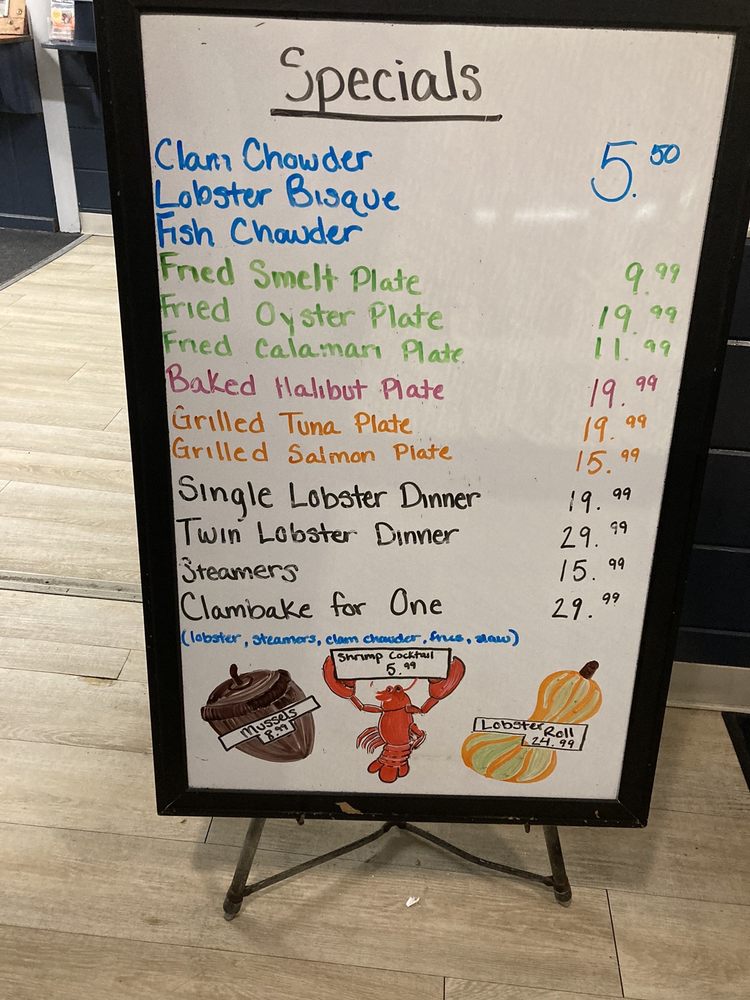 Specials
Clam Chowder 5.50
Lobster Bisque
Fish Chowder
Fried Smelt Plate 9.99
Fried Oyster Plate 19.99
Fried Calamari Plate 11.99
Baked Halibut Plate 19.99
Grilled Tuna Plate 19.99
Grilled Salmon Plate 15.99
Single Lobster Dinner 19.99
Twin Lobster Dinner 29.99
Steamers 15.99
Clambake for One 29.99
(lobster, steamers, clam chowder, fries, slaw)
Shrimp Cocktail
5.99
Mussels
8.99
Lobster Roll
24.99